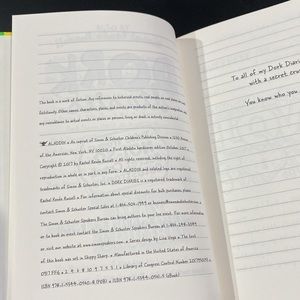 This book is a work of fiction. Any references to historical events, real people, or real places are used
fictitiously. Other names, characters, places, and events are products of the author's imagination, and
any resemblance to actual events or places or persons, living or dead, is entirely coincidental.
ALADDIN • An imprint of Simon & Schuster Children's Publishing Division • 1230 Avenue
of the Americas, New York, NY 10020 • First Aladdin hardcover edition October 2017
Copyright © 2017 by Rachel Renée Russell • All rights reserved, including the right of
reproduction in whole or in part in any form. • ALADDIN and related logo are registered
trademarks of Simon & Schuster, Inc. • DORK DIARIES is a registered trademark of
Rachel Renée Russell • For information about special discounts for bulk purchases, please
contact Simon & Schuster Special Sales at 1-866-506-1949 or business@simonandschuster.com.
The Simon & Schuster Speakers Bureau can bring authors to your live event. For more information
or to book an event contact the Simon & Schuster Speakers Bureau at 1-866-248-3049
or visit our website at www.simonspeakers.com. • Series design by Lisa Vega • The text
of this book was set in Skippy Sharp. • Manufactured in the United States of America
2 4 6 8 10 9 7 5 3 1 • Library of Congress Control Number
To all of my Dork Diaries
with a secret
You know who you